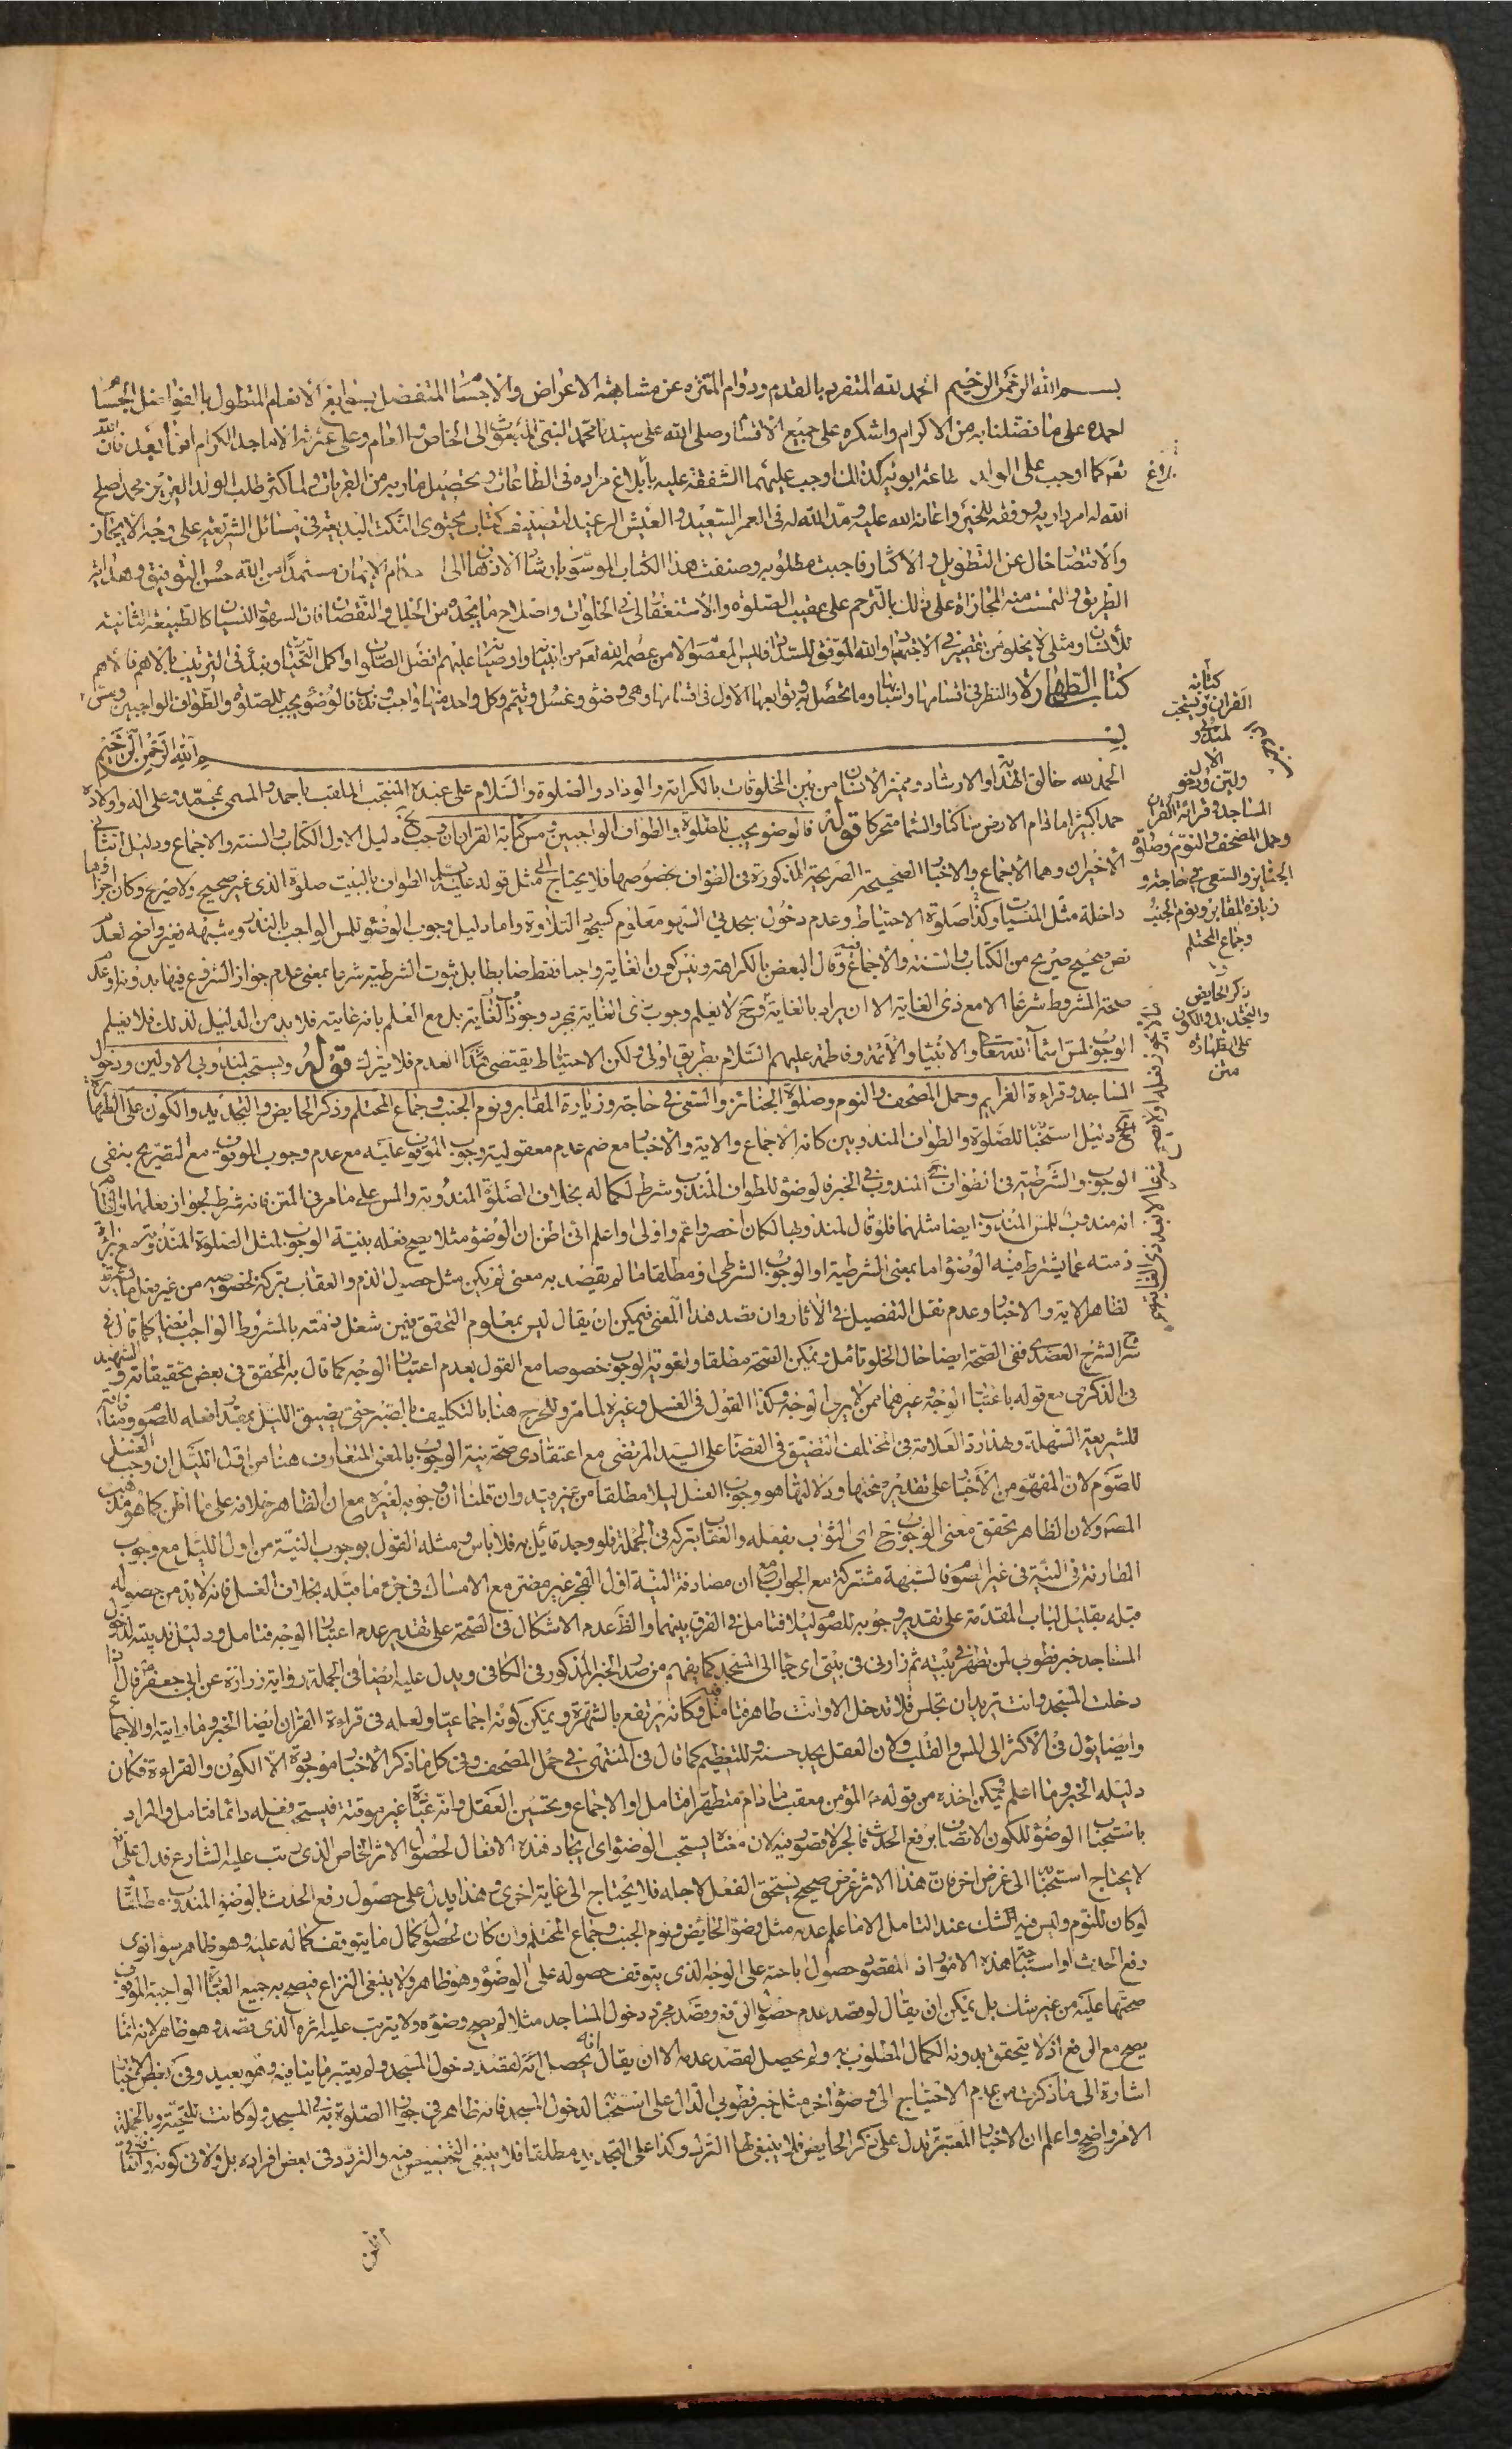 بسم الله الرحمن الرحيم الحمد لله المتفرد بالقدم ودوام المتنزه عن مشابهة الاعراض والاجسام المتفضل بسوابغ الانعام المتطول بالفواضل الجسام
احمده على ما فضلنا به من الاكرام واشكره على جميع الاقسام وصلى الله على سيدنا محمد النبي المبعوث الى الخاص والعام وعلى عترته الاماجد الكرام اما بعد فان الله
تعم كما اوجب على الولد طاعة ابويه كذلك اوجب عليهما الشفقة عليه بابلاغ مراده في الطاعات وتحصيل مآربه من القربات ولما كثر طلب الولد العزيز محمد اصلح
الله له امر داريه ووفقه للخير واعانه الله عليه ومد الله له في العمر السعيد والعيش الرغيد لتصنيف كتاب يحتوى النكت البديعة في مسائل الشريعة على وجه الايجاز
والاقتصار خال عن التطويل والاكثار فاجبت مطلوبه وصنفت هذا الكتاب الموسوم بارشاد الاذهان الى احكام الايمان مستمدا من الله حسن التوفيق وهداية
الطريق والتمست منه المجازاة على ذلك بالترحم على عقيب الصلوة والاستغفار لى في الخلوات واصلاح ما يجده من الخلل والنقصان فان السهو والنسيان كالطبيعة الثانية
للانسان ومثلى لا يخلو من تقصير في الاجتهاد والله الموفق للسداد فليس المعصوم الا من عصمه الله تعم من انبيائه واوصيائه عليهم افضل الصلوات واكمل التحيات ونبدأ في الترتيب بالاهم فالاهم
كتاب الطهارة والنظر في اقسامها واسبابها وما تحصل به وتوابعها الاول في اقسامها وهى وضوء وغسل وتيمم وكل واحد منها واجب وندب فالوضوء يجب للصلوة والطواف الواجبين ومس
كتابة
القران ويستحب
لمندوبى
الاولين ودخول
المساجد وقرائة القران
وحمل المصحف والنوم وصلوة
الجنائز والسعى في حاجة و
زيارة المقابر ونوم الجنب
وجماع المحتلم
وذكر الحايض
والتجديد والكون
على الطهارة
متن
بسم الله الرحمن الرحيم
الحمد لله خالق الهداية والارشاد ومميز الانسان من بين المخلوقات بالكرامة والوداد والصلوة والسلام على عبده المنتجب الملقب باحمد والمسمى بمحمد وعلى اله واولاده
حمدا كثيرا ما دام الارض ساكنا والسماء متحركا قوله فالوضوء يجب للصلوة والطواف الواجبين ومس كتابة القران ان وجب دليل الاول الكتاب والسنة والاجماع ودليل الثانى
الاخيران وهما الاجماع والاخبار الصحيحة الصريحة المذكورة في الطواف بخصوصها فلا يحتاج الى مثل قوله عليه السلم الطواف بالبيت صلوة الذى غير صحيح ولا صريح وكان اجزاؤها
داخلة مثل المنسيات وكذا صلوة الاحتياط وعدم دخول سجدتى السهو معلوم كسجود التلاوة واما دليل وجوب الوضوء للمس الواجب بالنذر وشبهه فغير واضح لعدم
نص صحيح صريح من الكتاب والسنة والاجماع وقال البعض بالكراهة وليس كون الغاية واجبا فقط ضابطا بل ثبوت الشرطية شرعا بمعنى عدم جواز الشروع فيها بدونه او عدم
صحة المشروط شرعا الا مع ذى الغاية الا ان يراد بالغاية وح لا يعلم وجوب ذى الغاية بمجرد وجود الغاية بل مع العلم بانه غايته فلا بد من الدليل لذلك فلا يعلم
الوجوب لمس اسماء الله تعالى والانبياء والائمة وفاطمة عليهم السلام بطريق اولى ولكن الاحتياط يقتضى ذلك فلا يترك قوله ويستحب لمندوبى الاولين ودخول
المساجد وقراءة القران وحمل المصحف والنوم وصلوة الجنائز والسعى في حاجة وزيارة المقابر ونوم الجنب وجماع المحتلم وذكر الحايض والتجديد والكون على الطهارة
الخ دليل استحبابه للصلوة والطواف المندوبين كانه الاجماع والاية والاخبار مع ضم عدم معقولية وجوب الموقوف عليه مع عدم وجوب الموقوف مع التصريح بنفى
الوجوب والشرطية في الطواف المندوب في الخبر فالوضوء للطواف المندوب شرط لكماله بخلاف الصلوة المندوبة والمس على ما مر في المتن فانه شرط لجواز فعلهما والظ
انه مندوب للمس المندوب ايضا مثلهما فلو قال لمندوبها لكان اخصر واعم واولى واعلم انى اظن ان الوضوء مثلا يصح فعله بنية الوجوب لمثل الصلوة المندوبة مع براءة
ذمته عما يشترط فيه الوضوء اما بمعنى الشرطية او الوجوب الشرطى او مطلقا ما لم يقصد به معنى لم يكن مثل حصول الذم والعقاب بتركه بخصوصه من غير فعل
لظاهر الاية والاخبار وعدم نقل التفصيل في الاثار وان قصد هذا المعنى فيمكن ان يقال ليس بمعلوم التحقق بتعين شغل ذمته بالمشروط الواجب ايضا كما قال في
شرح الشرح العضدى ففى الصحة ايضا حال الخلو تامل ويمكن الصحة مطلقا ولغوية الوجوب خصوصا مع القول بعدم اعتبار الوجه كما قال به المحقق في بعض تحقيقاته والشهيد
في الذكرى مع قوله باعتبار الوجه وغيرهما ممن لا يرى الوجه وكذا القول في الغسل وغيره لما مر وللحرج هنا بالتكليف بالصبر حتى يضيق الليل بمقدار فعله للصوم ومنافاته
للشريعة السهلة وبهذا رد العلامة في المختلف التضييق في القضاء على السيد المرتضى مع اعتقادى صحة نية الوجوب بالمعنى المتعارف هنا من اول الليل ان وجب الغسل
للصوم لان المفهوم من الاخبار على تقدير صحتها ودلالتها هو وجوب الغسل ليلا مطلقا من غير قيد وان قلنا ان وجوبه لغيره مع ان الظاهر خلافه على ما اظن كما هو مذهب
المصنف ولان الظاهر تحقق معنى الوجوب ح اى الثواب بفعله والعقاب بتركه في الجملة فلو وجد قائل به فلا باس ومثله القول بوجوب النية من اول الليل مع وجوب
المقارنة في النية في غير الصوم فالشبهة مشتركة مع الجواب مع ان مصادفة النية اول الفجر غير مضر مع الامساك في جزء ما قبله بخلاف الغسل فانه لا بد من حصوله
قبله بقليل لباب المقدمة على تقدير وجوبه للصوم ليلا فتامل في الفرق بينهما والظ عدم الاشكال في الصحة على تقدير عدم اعتبار الوجه فتامل ودليل ندبيته لدخول
المساجد خبر فطوبى لمن تطهر في بيته ثم زارنى في بيتى اى جاء الى المسجد كما يفهم من صدر الخبر المذكور في الكافى ويدل عليه ايضا في الجملة رواية زرارة عن ابى جعفر قال اذا
دخلت المسجد وانت تريد ان تجلس فلا تدخل الا وانت طاهر فتامل فيه وكانه يرتفع بالشهرة ويمكن كونه اجماعيا ولعله في قراءة القران ايضا الخبر وما رايته او الاجماع
وايضا يؤل في الاكثر الى المس والقلب ولان العقل يجد حسنه وللتعظيم كما قال في المنتهى في حمل المصحف وفى كل ما ذكر الاخبار موجودة الا الكون والقراءة فكان
دليله الخبر وما اعلم ويمكن اخذه من قوله المؤمن معقب ما دام متطهرا فتامل او الاجماع وتحسين العقل وانه عبادة غير موقتة فيستحب فعله دائما فتامل والمراد
باستحباب الوضوء للكون الاتصاف برفع الحدث فالجر لا قصور فيه لان معناه يستحب الوضوء اى ايجاد هذه الافعال لحصول الاثر الخاص الذى يترتب عليه الشارع فدل على انه
لا يحتاج استحبابه الى غرض اخر فان هذا الاثر غرض صحيح يستحق الفعل لاجله فلا يحتاج الى غاية اخرى وهذا يدل على حصول رفع الحدث بالوضوء المندوب مطلقا
لو كان للنوم وليس فيه الشك عند التامل الا ما علم عدمه مثل وضوء الحائض ونوم الجنب وجماع المحتلم وان كان لحصول كمال ما يتوقف كماله عليه وهو ظاهر سواء نوى
رفع الحدث او استباحة هذه الامور اذ المقصود حصول اباحته على الوجه الذى يتوقف حصوله على الوضوء وهو ظاهر ولا ينبغى النزاع فيصح به جميع العبادات الواجبة الموقوف
صحتها عليه من غير شك بل يمكن ان يقال لو قصد عدم حصول الرفع وقصد مجرد دخول المساجد مثلا لم يصح وضوءه ولا يترتب عليه اثره الذى قصد وهو ظاهر لانه انما
يصح مع الرفع اذ لا يتحقق بدونه الكمال المطلوب به ولم يحصل لقصد عدمه الا ان يقال انه يحصل لقصد دخول المسجد ولم يعتبر ما ينافيه وهو بعيد وفى بعض الاخبار
اشارة الى ما ذكرت من عدم الاحتياج الى وضوء اخر مثل خبر فطوبى الدال على استحبابه لدخول المسجد فانه ظاهر في جواز الصلوة به في المسجد ولو كانت للتحية وبالجملة
الامر واضح واعلم ان الاخبار المعتبرة تدل على ذكر الحايض فلا ينبغى لها الترك وكذا على التجديد مطلقا فلا ينبغى التخصيص فيه والتردد في بعض افراده بل ولا في كونه رافعا
اظن